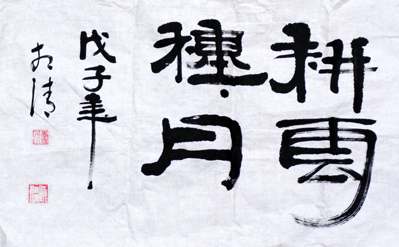 耕雲
穜月
戊子年
志清